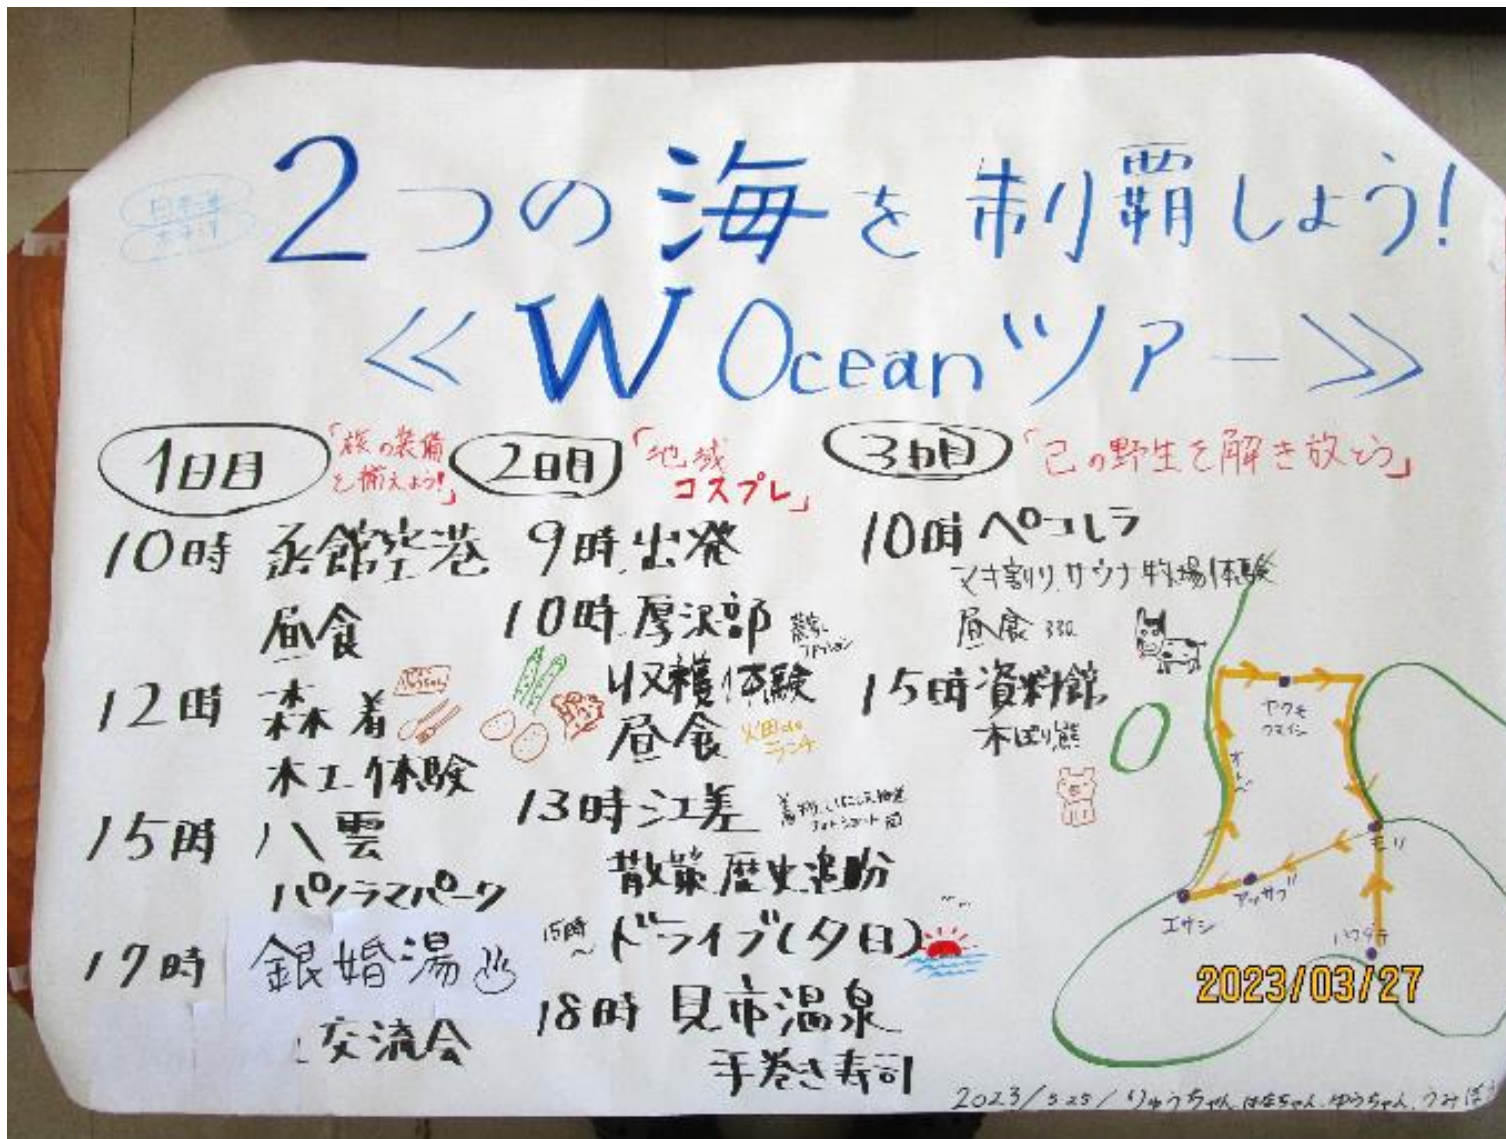 日本海
太平洋
2つの海を制覇しょう!
≪W Oceanツアー≫
1日目 「旅の装備
を揃えよう!」
10時 函館空港
昼食
12時 森着
木工体験
15時 八雲
パノラマパーク
17時 銀婚湯
交流会
2日目 「地域
コスプレ」
9時 出発
10時 厚沢部
収穫体験
昼食
ランチ
13時 江差
散策 歴史追
15時~ ドライブ(夕日)
18時 見市温泉
手巻き寿司
3日目 「己の野生を解き放とう」
10時 ペコレラ
マキ割り、サウナ 牧場体験
昼食
15時 資料館
木ぼり熊
ヤクモ
クマイシ
モリ
アッサブ
エサシ
ハコダテ
2023/03/27
2023/3.25/りゅうちゃん、はなちゃん、ゆうちゃん、うみぼ